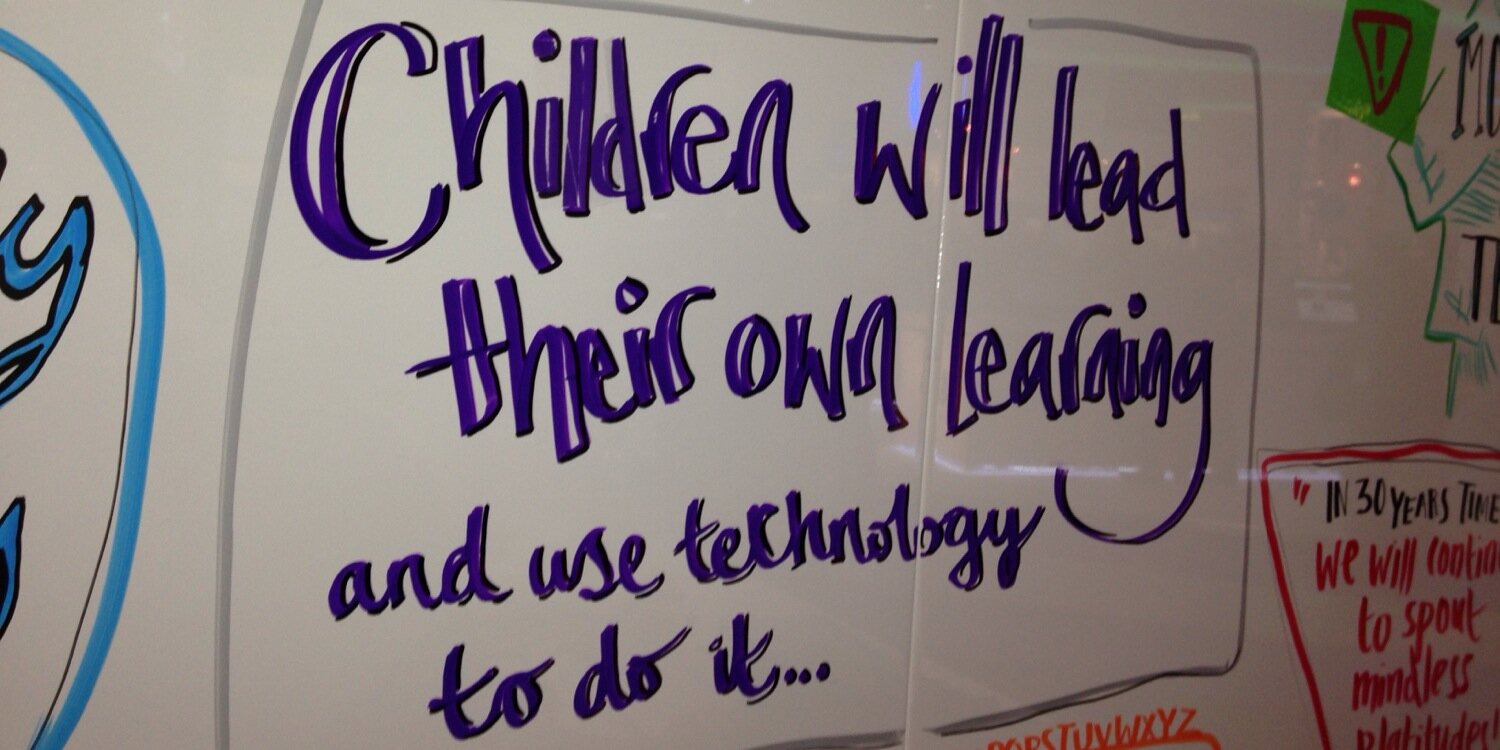 Children will lead
their own learning
and use technology
to do it...
!
" IN 30 YEARS TIME
WE WILL
to spout
mindless
QRSTUVWXYZ